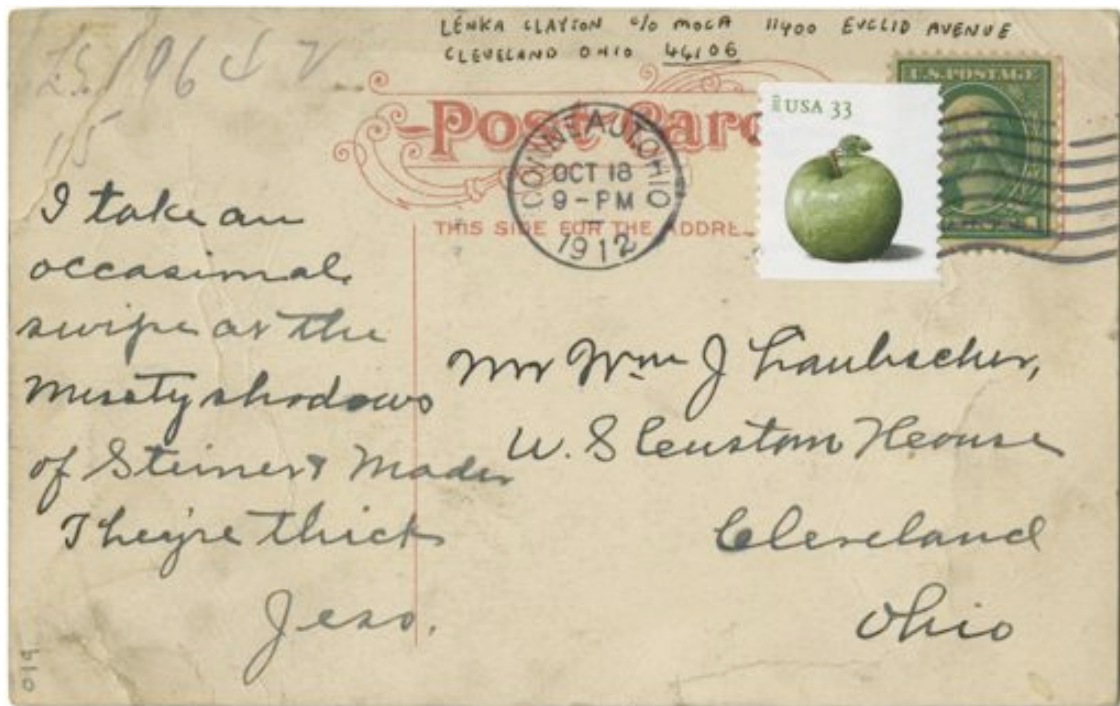 LENKA CLAYTON c/o MOCA 11400 EUCLID AVENUE
CLEVELAND OHIO 44106
U.S. POSTAGE
Post Card
USA 33
CONNEAUT, OHIO
OCT 18
9-PM
1912
THIS SIDE FOR THE ADDRE
I take an
occasional
swipe at the
Misty shadows
of Steiner & Mader
They're thick
Mr Wm J Laubscher,
U. S Custom House
Cleveland
Ohio
019